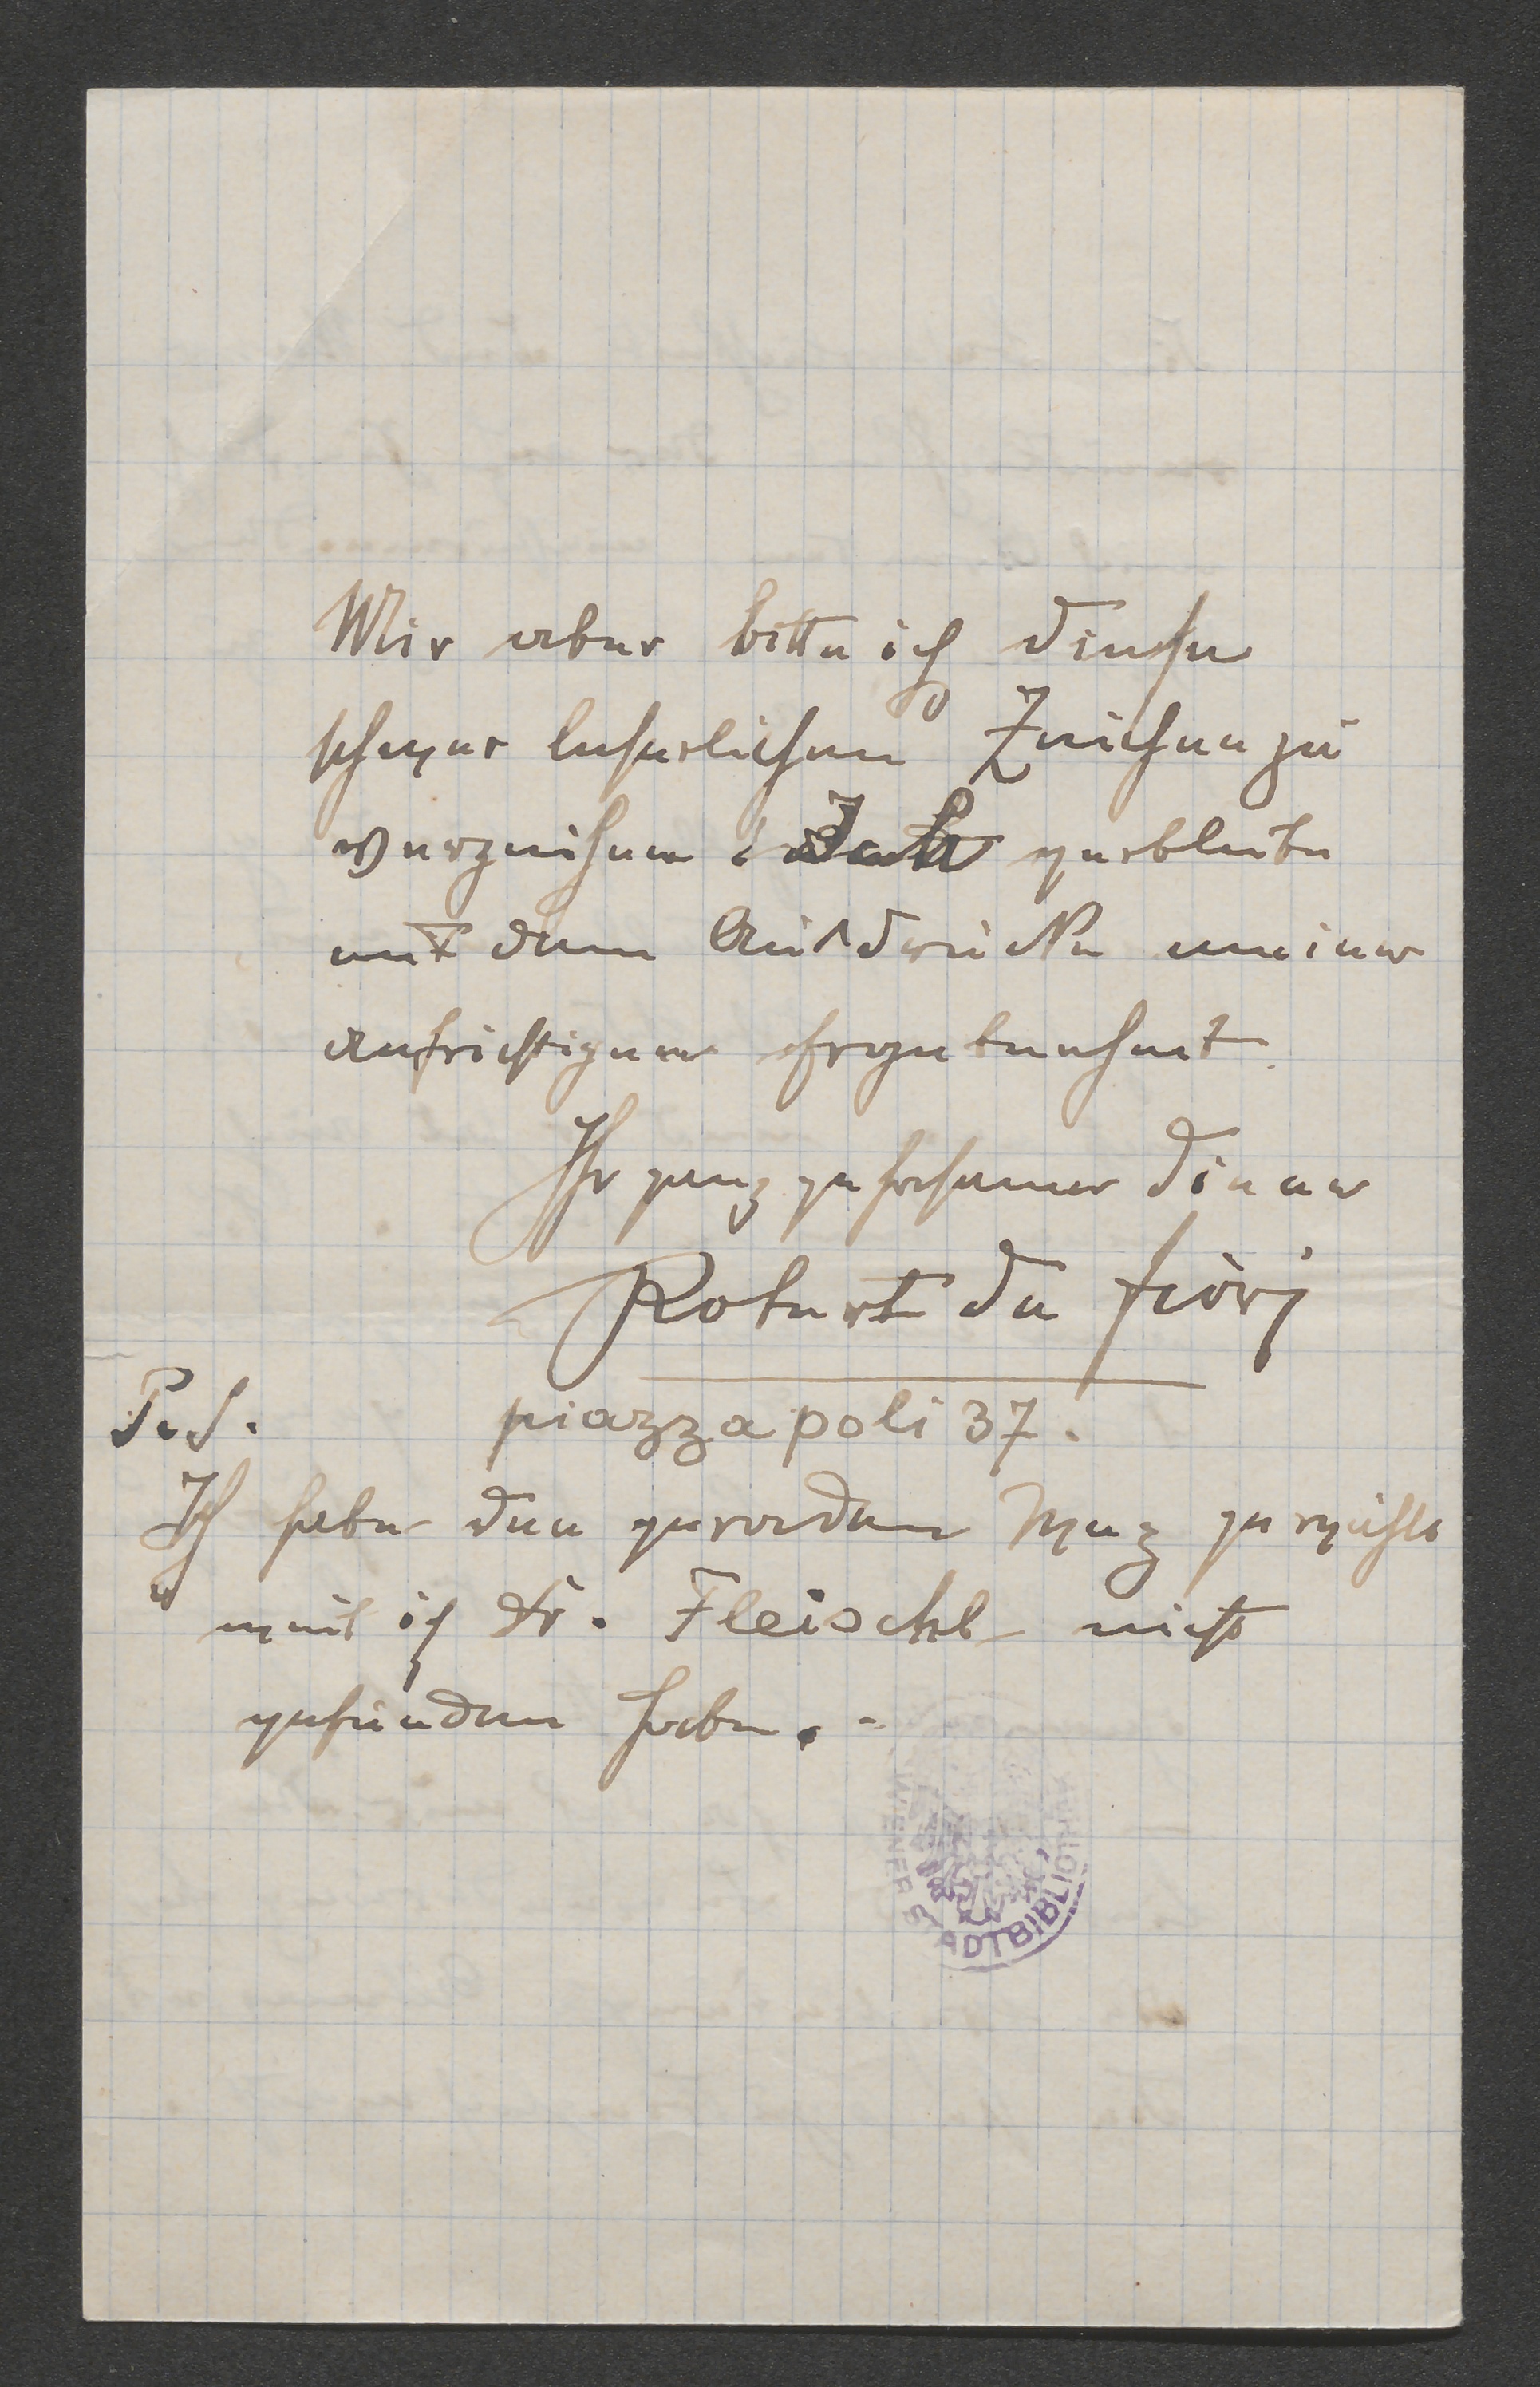 Mir aber bitte ich diese
schwer leserlichen Zeichen zu
verzeihen Ich verbleibe
mit dem Ausdrucke meiner
aufrichtigen Ergebenheit
Ihr ganz gehorsamer Diener
Robert de Fiori
piazza poli 37.
P.S.
Ich habe den geraden Weg gewählt
weil ich Dr. Fleischl nicht
gefunden habe. -
WIENER STADTBIBLIOTHEK